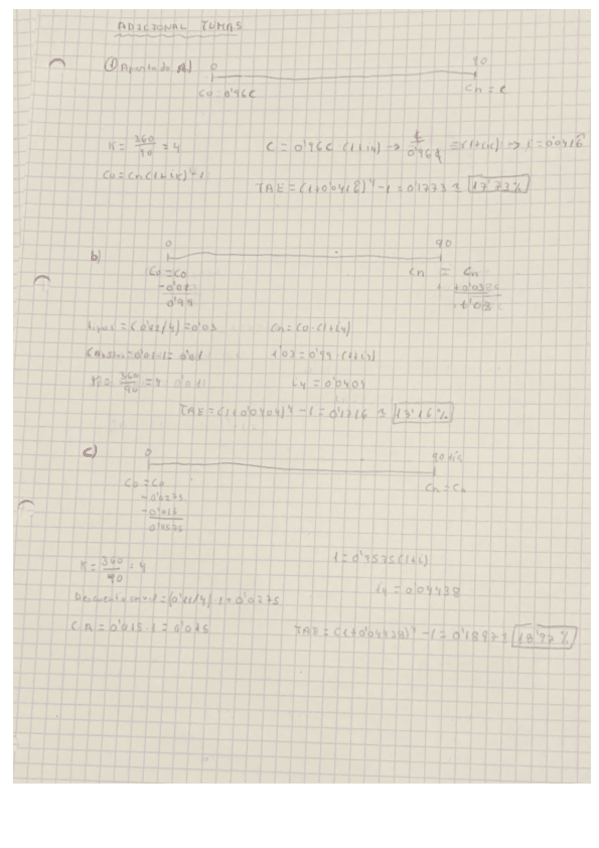 ADICIONAL TUMAS
① Apartado A) 0 90
C0 = 0'96C Cn = C
K = 360/90 = 4 C = 0'96C (1+i4) → C/0'96C = (1+i4) → i = 0'0416
C0 = Cn(1+iK)^-1
TAE = (1+0'0418)^4 - 1 = 0'1773 ≈ 17'73%
b) 0 90
C0 = C0 Cn = Cn
-0'01 +0'03
0'99 1'03
= (0'12/4) = 0'03 Cn = C0·(1+i4)
= 0'01·1 = 0'01 1'03 = 0'99·(1+i4)
K = 360/90 = 4 i4 = 0'0404
TAE = (1+0'0404)^4 - 1 = 0'1716 ≈ 17'16%
c) 0 90 días
C0 = C0 Cn = Cn
-0'0275
-0'015
0'9575
K = 360/90 = 4 1 = 0'9575(1+i)
i4 = 0'04438
= (0'11/4)·1 = 0'0275
CA = 0'015·1 = 0'015 TAE = (1+0'04438)^4 - 1 = 0'1897 ≈ 18'97%